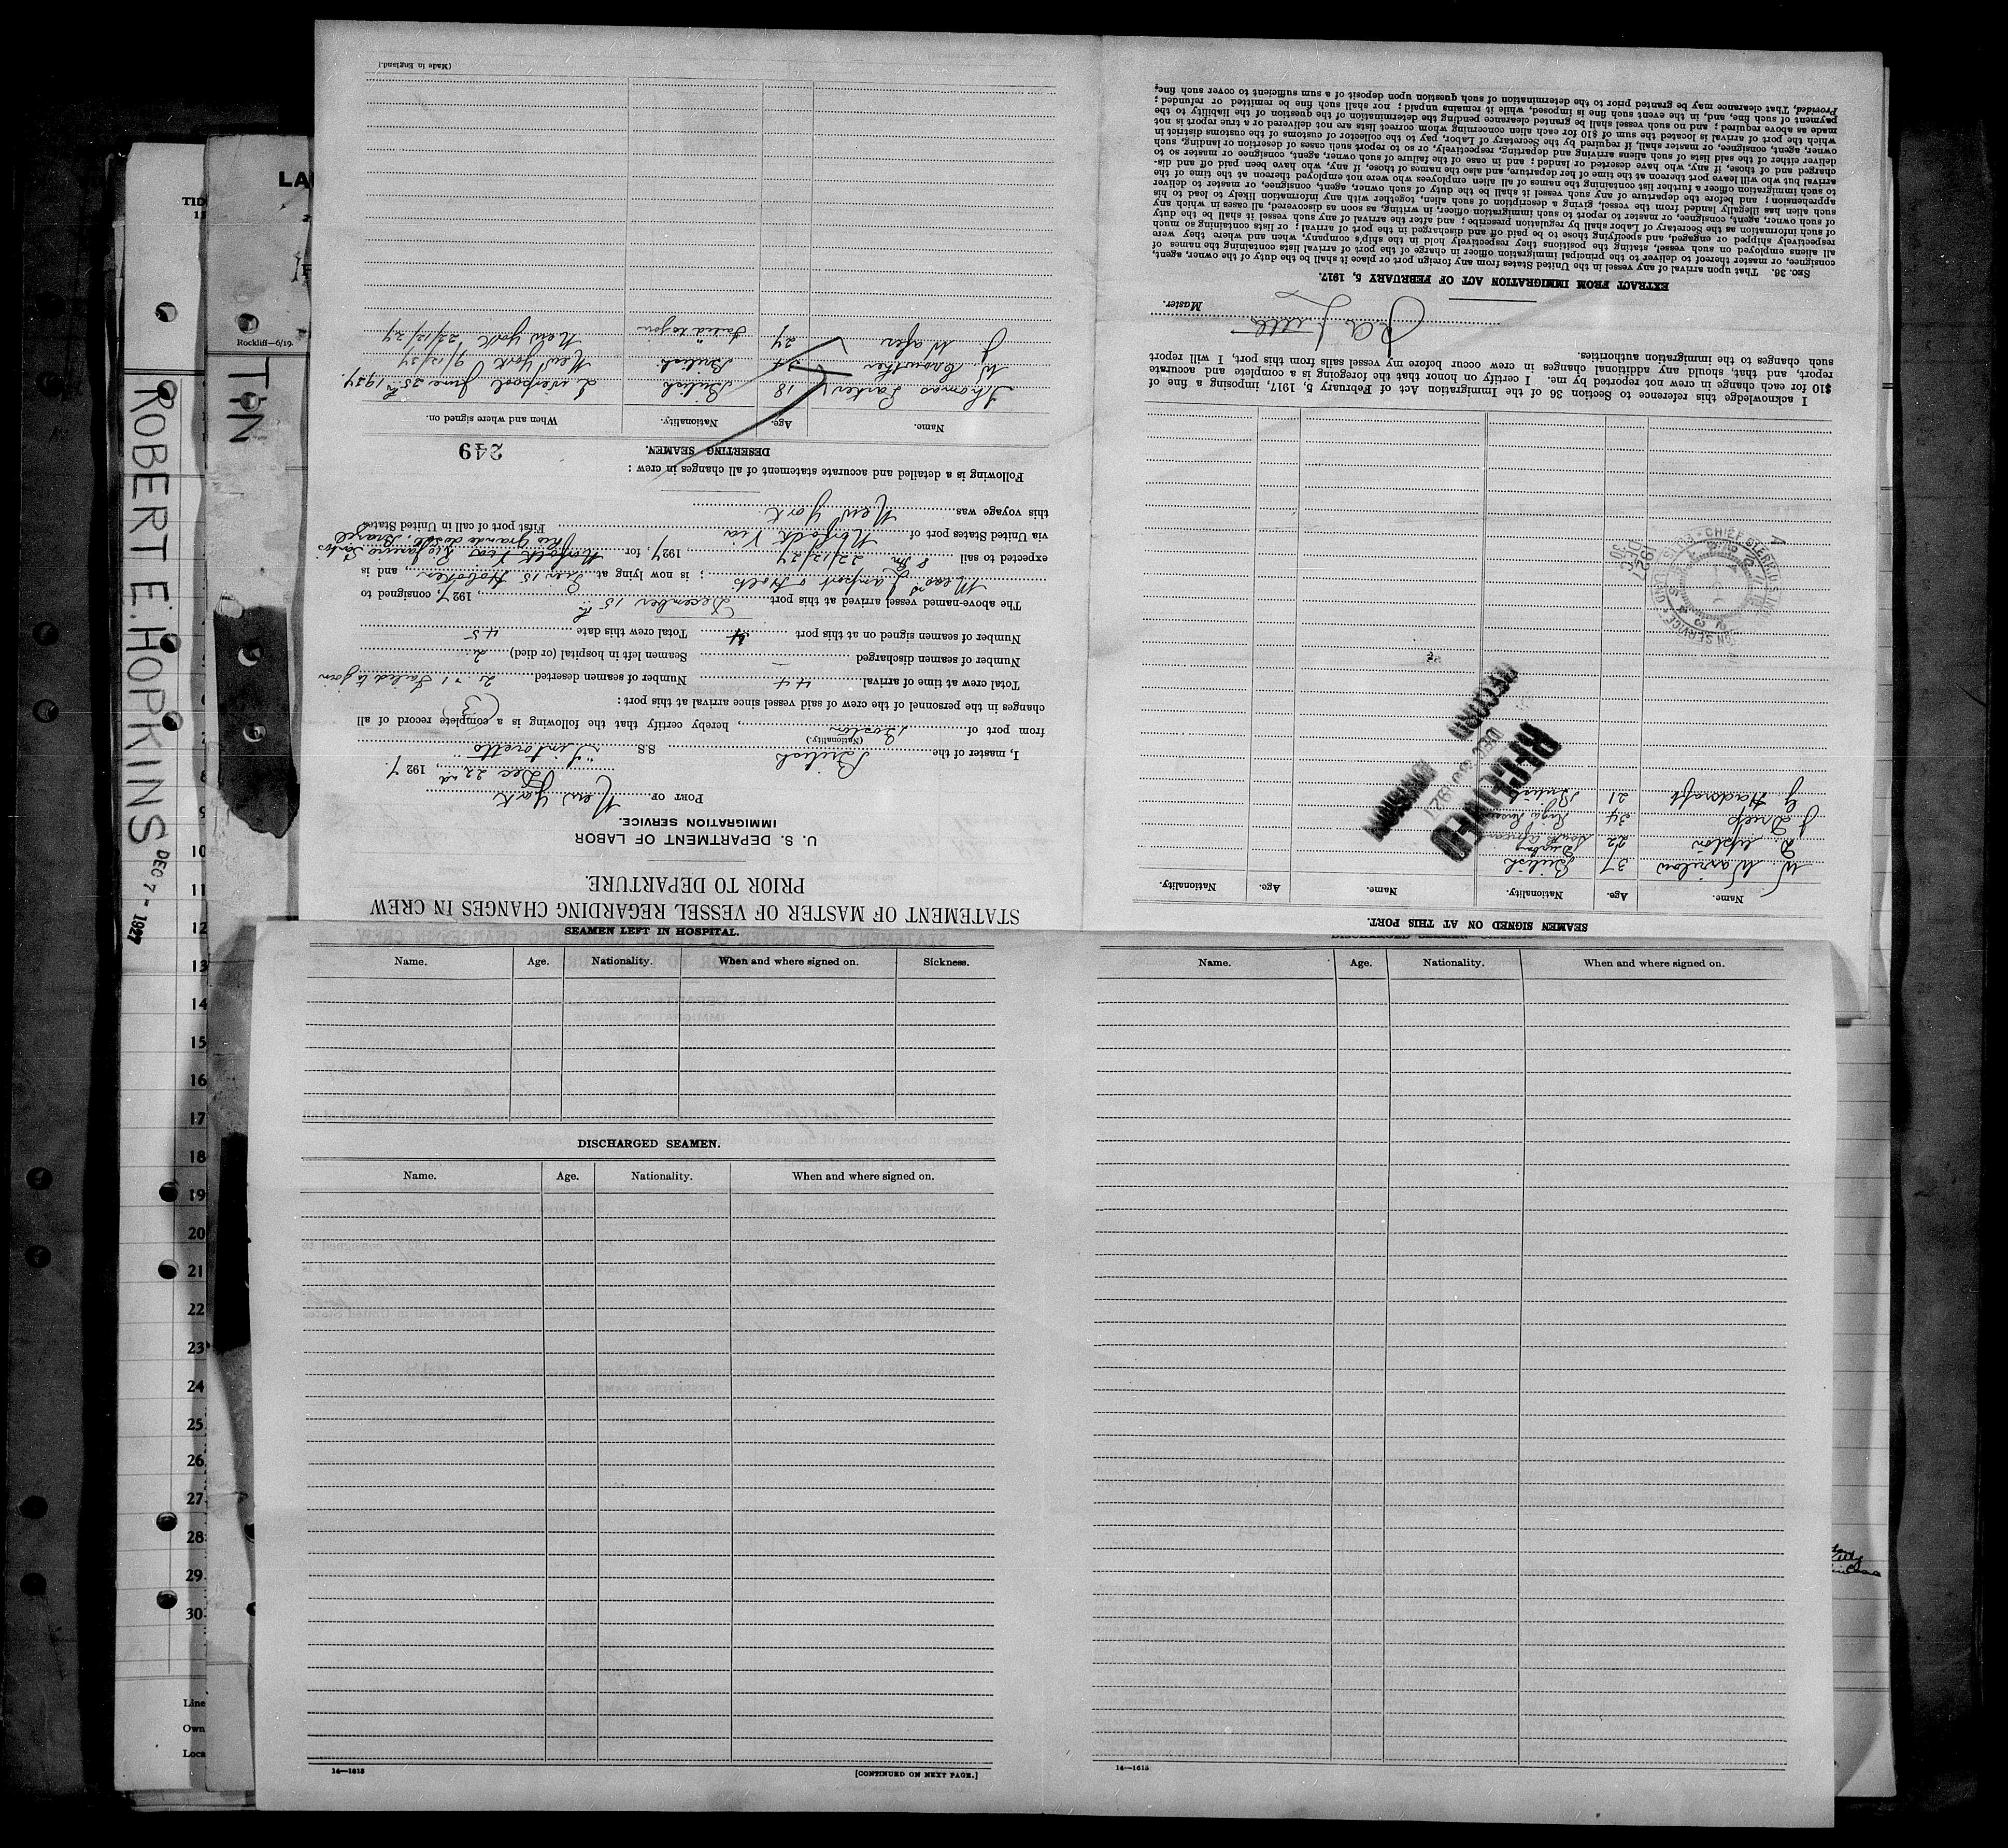 STATEMENT OF MASTER OF VESSEL REGARDING CHANGES IN CREW
PRIOR TO DEPARTURE.
U. S. DEPARTMENT OF LABOR
IMMIGRATION SERVICE.
PORT OF New York
Dec 22nd, 1927.
I, master of the British S.S. "Tintoretto"
(Nationality)
from port of Boston, hereby certify that the following is a complete record of all
changes in the personnel of the crew of said vessel since arrival at this port:
(3)
Total crew at time of arrival 44 Number of seamen deserted 2 1 Failed to join
Number of seamen discharged — Seamen left in hospital (or died) 2
Number of seamen signed on at this port 4 Total crew this date 45
The above-named vessel arrived at this port December 15th, 1927, consigned to
Messrs Lamport & Holts; is now lying at Pier 15 Hoboken, and is
expected to sail 8 Pm 22/12/27, 1927 for Norfolk Via Rio Janeiro Santos
Rio Grande do Sul Brazil
via United States port of Norfolk Via First port of call in United States
this voyage was New York
Following is a detailed and accurate statement of all changes in crew:
DESERTING SEAMEN.
249
Name. Age. Nationality. When and where signed on.
Thomas Parker 18 British Liverpool June 25th 1927.
W. Crowther 24 British New York 9/12/27
J. Wafer 24 " Failed to join New York 22/12/27
(Made in England.)
SEAMEN SIGNED ON AT THIS PORT.
Name. Age. Nationality. Name. Age. Nationality.
W Warilow 37 British
D. Upton 22 South African
J Driep 34 Riga Russia
G Hadcroft 21 British
RECEIVED
DEC 30 1927
RECORD DIVISION
CHIEF CLERK U.S. IMMIGRATION SERVICE
1927
DEC
30
I acknowledge this reference to Section 36 of the Immigration Act of February 5, 1917, imposing a fine of
$10 for each change in crew not reported by me. I certify on honor that the foregoing is a complete and accurate
report, and that, should any additional changes in crew occur before my vessel sails from this port, I will report
such changes to the immigration authorities.
Master.
EXTRACT FROM IMMIGRATION ACT OF FEBRUARY 5, 1917.
SEC. 36. That upon arrival of any vessel in the United States from any foreign port or place it shall be the duty of the owner, agent,
consignee, or master thereof to deliver to the principal immigration officer in charge of the port of arrival lists containing the names of
all aliens employed on such vessel, stating the positions they respectively hold in the ship's company, when and where they were
respectively shipped or engaged, and specifying those to be paid off and discharged in the port of arrival; or lists containing so much
of such information as the Secretary of Labor shall by regulation prescribe; and after the arrival of any such vessel it shall be the duty
of such owner, agent, consignee, or master to report to such immigration officer, in writing, as soon as discovered, all cases in which any
such alien has illegally landed from the vessel, giving a description of such alien, together with any information likely to lead to his
apprehension; and before the departure of any such vessel it shall be the duty of such owner, agent, consignee, or master to deliver
to such immigration officer a further list containing the names of all alien employees who were not employed thereon at the time of the
arrival but who will leave port thereon at the time of her departure, and also the names of those, if any, who have been paid off and dis-
charged and of those, if any, who have deserted or landed; and in case of the failure of such owner, agent, consignee or master so to
deliver either of the said lists of such aliens arriving and departing, respectively, or so to report such cases of desertion or landing, such
owner, agent, consignee, or master, shall, if required by the Secretary of Labor, pay to the collector of customs of the customs district in
which the port of arrival is located the sum of $10 for each alien concerning whom correct lists are not delivered or a true report is not
made as above required; and no such vessel shall be granted clearance pending the determination of the question of the liability to the
payment of such fine, and, in the event such fine is imposed, while it remains unpaid; nor shall such fine be remitted or refunded;
Provided, That clearance may be granted prior to the determination of such question upon deposit of a sum sufficient to cover such fine.
SEAMEN LEFT IN HOSPITAL.
Name. Age. Nationality. When and where signed on. Sickness.
DISCHARGED SEAMEN.
Name. Age. Nationality. When and where signed on.
14—1613 [CONTINUED ON NEXT PAGE.]
Name. Age. Nationality. When and where signed on.
14—1613
ROBERT E. HOPKINS DEC 7 - 1927
LA
TID
Rockliff—6/19.
TIN
8
9
10
11
12
13
14
15
16
17
18
19
20
21
22
23
24
25
26
27
28
29
30
Line
Own
Loca